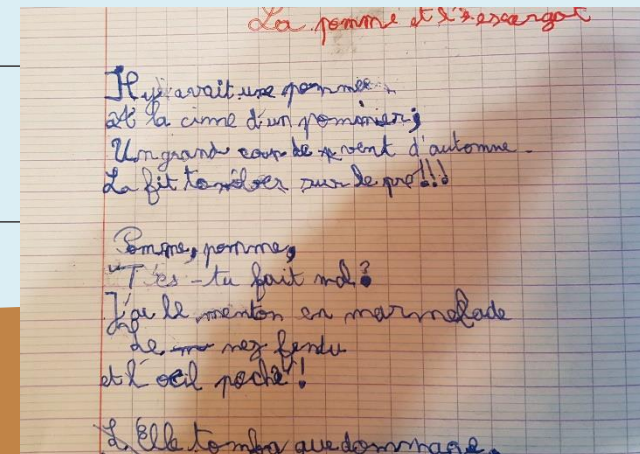 La pomme et l'escargot
Il y avait une pomme
A la cime d'un pommier;
Un grand coup de vent d'automne.
La fit tomber sur le pré!!!
Pomme, pomme,
"T'es-tu fait mal?
J'ai le menton en marmelade
Le nez fendu
et l'oeil poché"!
Elle tomba quel dommage,